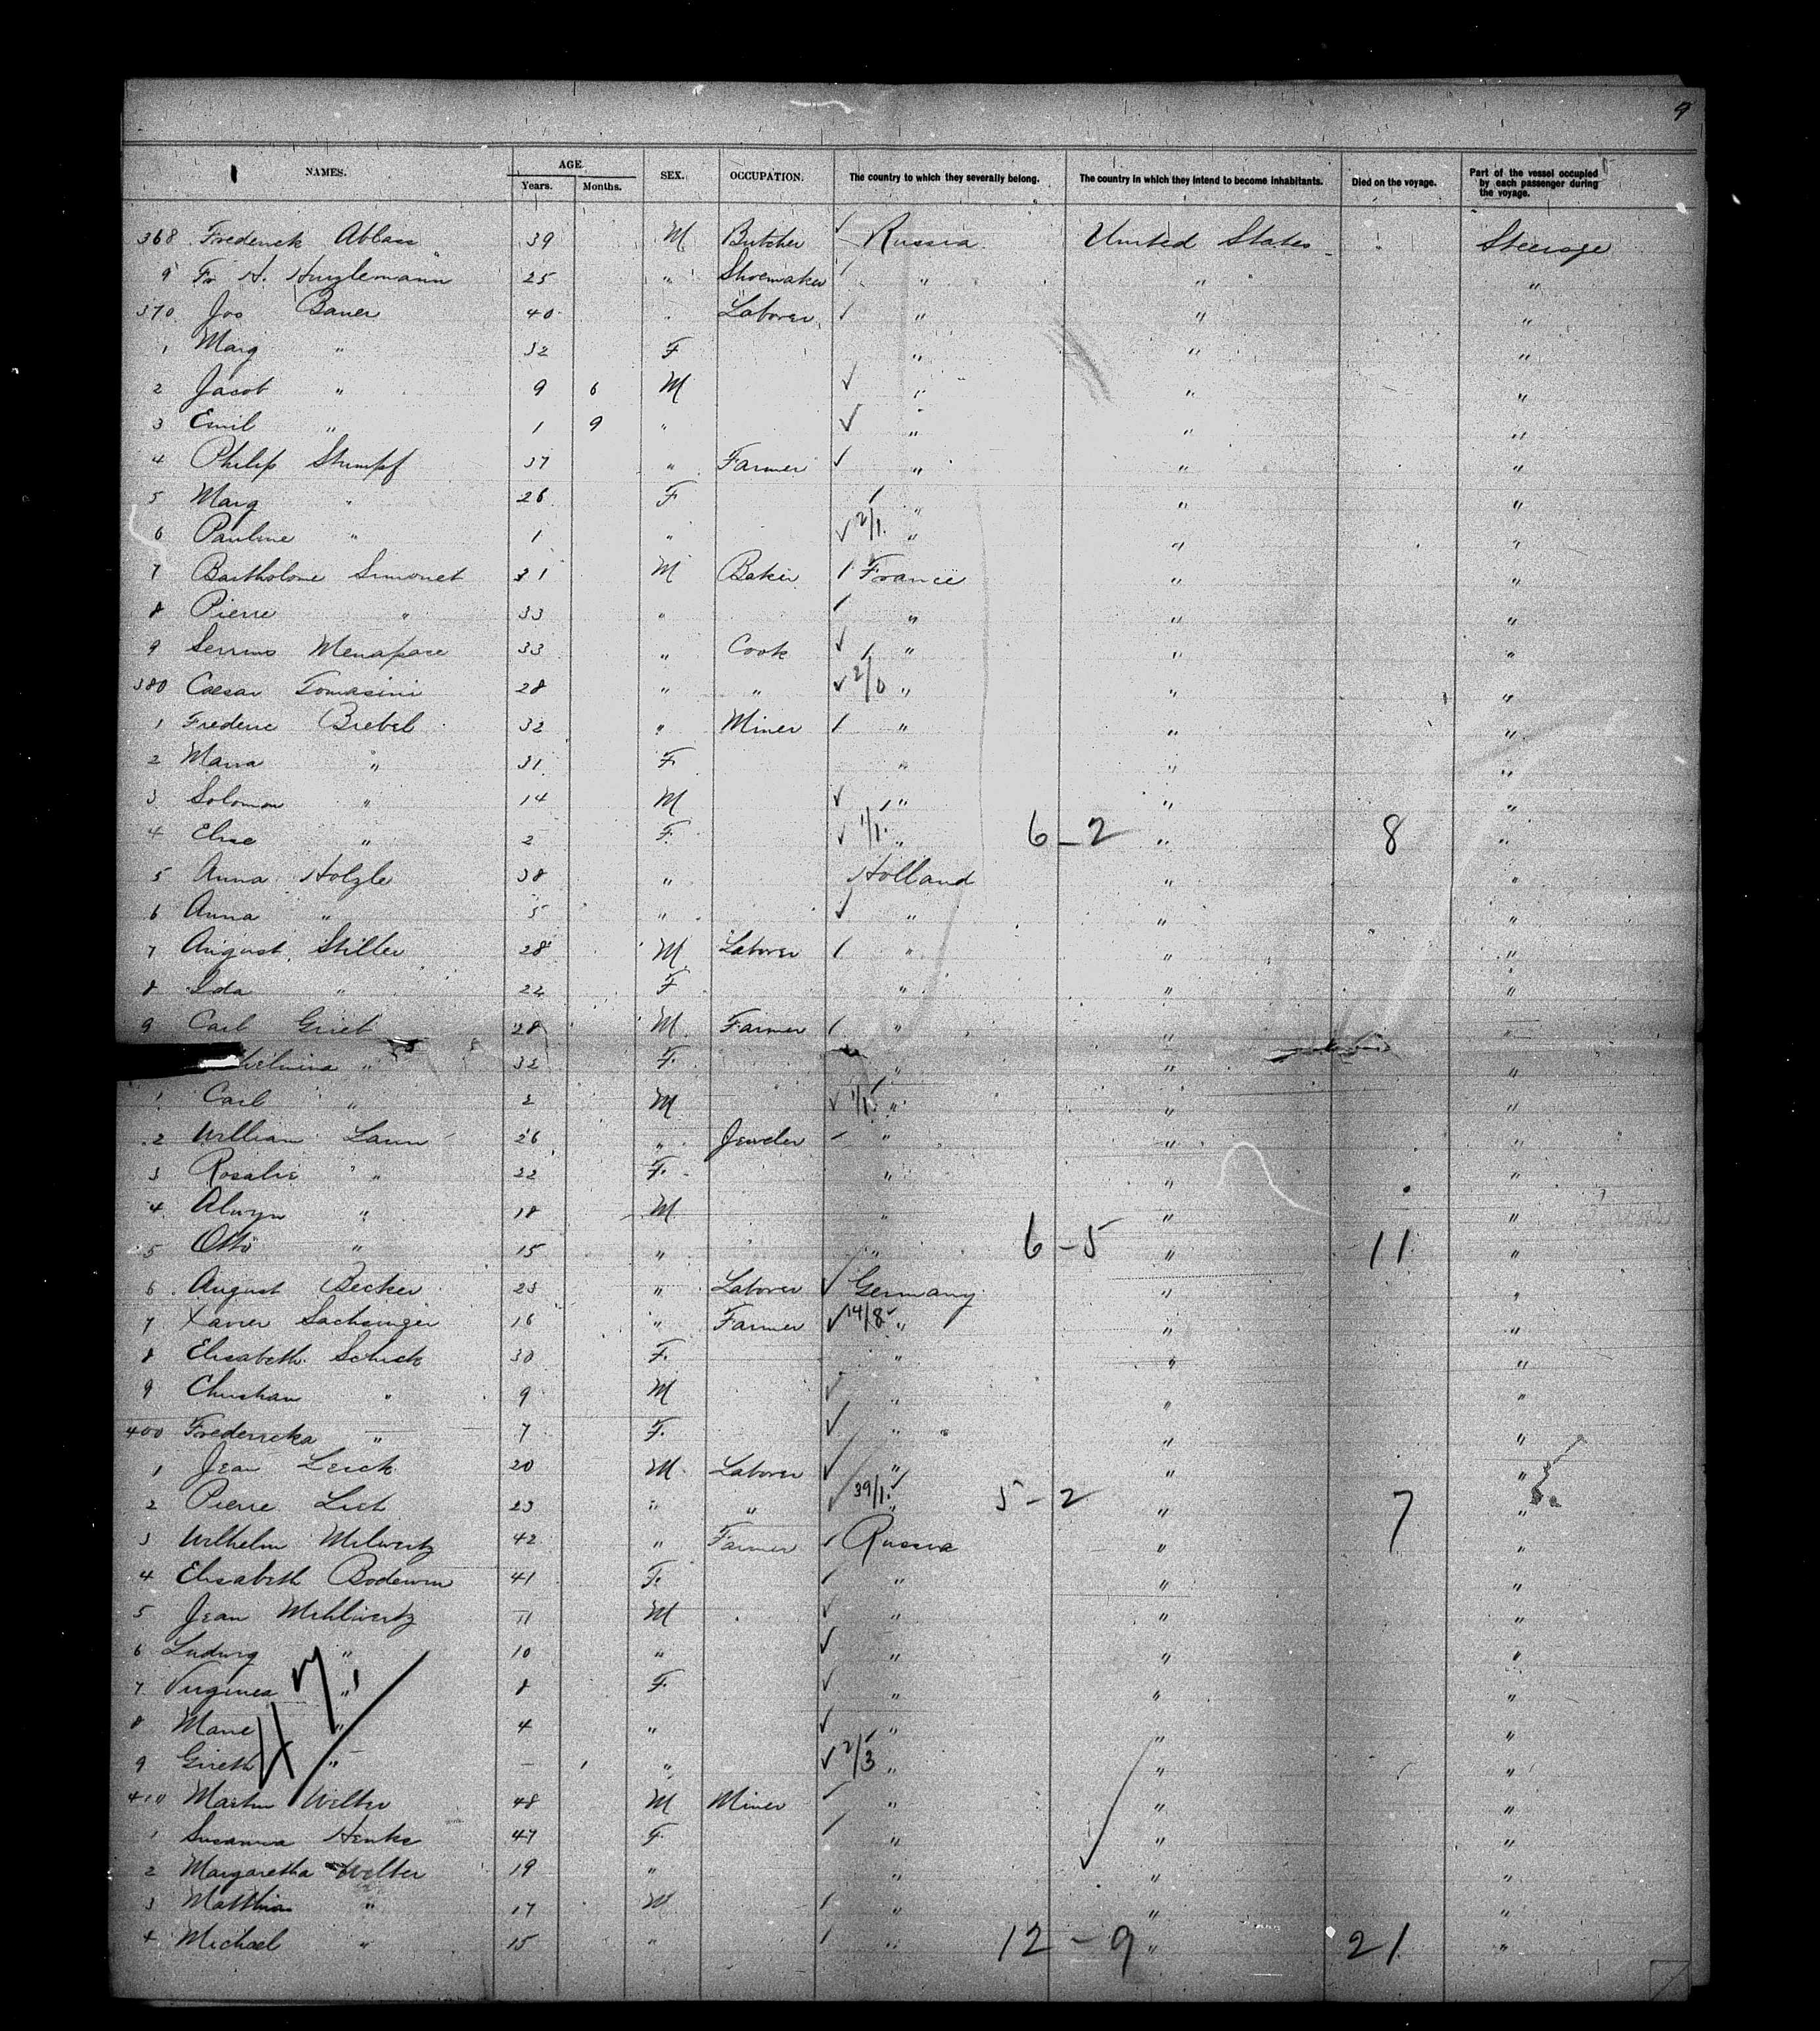 9
NAMES. AGE. Years. Months. SEX. OCCUPATION. The country to which they severally belong. The country in which they intend to become inhabitants. Died on the voyage. Part of the vessel occupied by each passenger during the voyage.
368 Frederick Ablass 39 M Butcher Russia United States Steerage
9 Fr H. 25 " Shoemaker " " "
370 Jos Bauer 40 " Laborer " " "
1 Marg " 32 F " " "
2 Jacob " 9 6 M " " "
3 Emil " 1 9 " " " "
4 Philip Stumpf 37 " Farmer " " "
5 Marg " 26 F " " "
6 Pauline " 1 " 2/1 " " "
7 Bartholome Simonet 31 M Baker France " "
8 Pierre " 33 " " " "
9 Menapace 33 " Cook " " "
380 Caesar Tomasini 28 " " 2/0 " " "
1 Frederic Brebel 32 " Miner " " "
2 Maria " 31 F. " " "
3 Solomon " 14 M " " "
4 Elise " 2 F. 1/1 " 6-2 " 8 "
5 Anna Holzle 38 " Holland " "
6 Anna " 5 " " " "
7 August Stiller 28 M Laborer " " "
8 Ida " 22 F " " "
9 Carl Grieb 28 M Farmer " " "
helmina " 32 F. " " "
1 Carl " 2 M 1/1 " " "
2 William Laun 26 " Jeweler " " "
3 Rosalie " 22 F. " " "
4 Alwyn " 18 M " " "
5 Otto " 15 " " 6-5 " 11 "
6 August Becker 23 " Laborer Germany " "
7 Xaver Sachsinger 16 " Farmer 14/8 " " "
8 Elisabeth Schick 30 F. " " "
9 Christian " 9 M " " "
400 Fredericka " 7 F. " " "
1 Jean Leick 20 M Laborer " " "
2 Pierre Lich 23 " " 39/1 " 5-2 " 7 "
3 Wilhelm Milwertz 42 " Farmer Russia " "
4 Elisabeth Bodewin 41 F. " " "
5 Jean Mihlwertz 11 M " " "
6 Ludwig " 10 " " " "
7 Virginea " 8 F. " " "
8 Marie " 4 " " " "
9 Greth " - 1 " 2/3 " " "
410 Martin Welter 48 M Miner " " "
1 Susanna Henks 47 F. " " "
2 Margaretha Welter 19 " " " "
3 Matthias " 17 M " " "
4 Michael " 15 " " 12-9 " 21 "
47